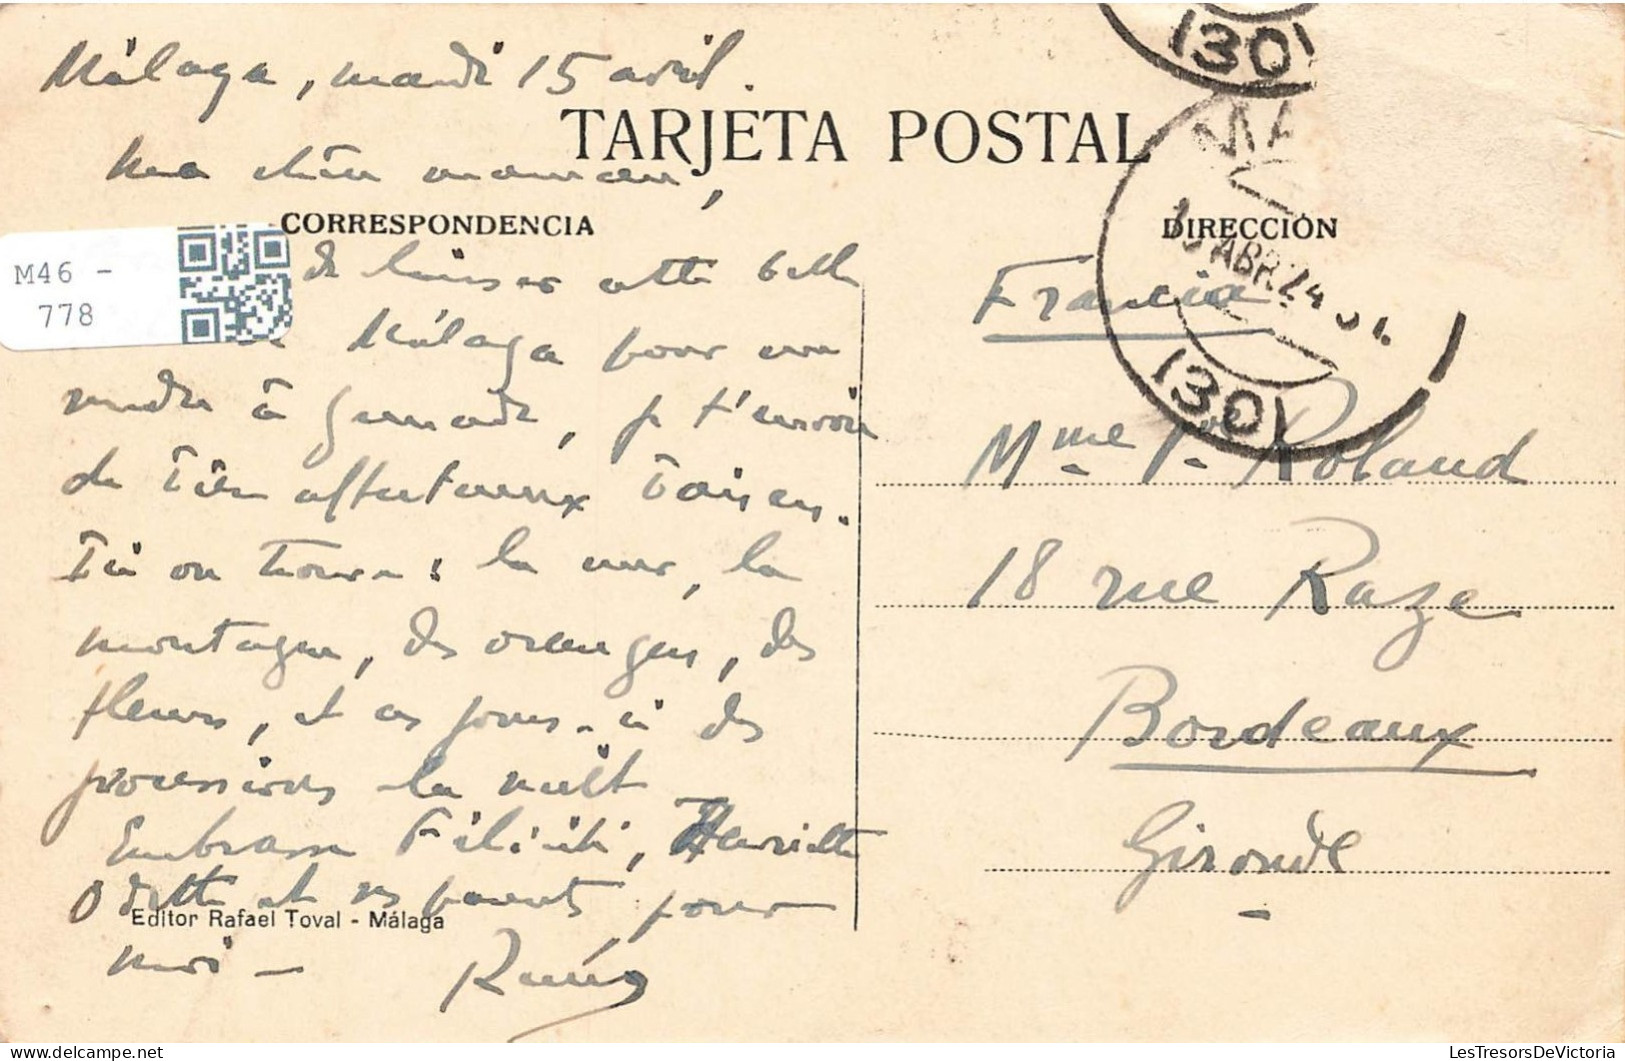 Málaga, mardi 15 avril.
TARJETA POSTAL
Ma chère maman,
CORRESPONDENCIA
de laisser cette belle
Málaga pour me
rendre à Grenade, je t'envoie
de bien affectueux baisers.
Ici on trouve : la mer, la
montagne, des oranges, des
fleurs, et ces jours-ci des
processions la nuit
Embrasse Félicité, Henriette
Odette et ses parents pour
moi —
René
Editor Rafael Toval - Málaga
M46 -
778
DIRECCIÓN
Francia
Mme Roland
18 rue Raze
Bordeaux
Gironde
(30)
MA
15 ABR 24
(30)
LesTresorsDeVictoria